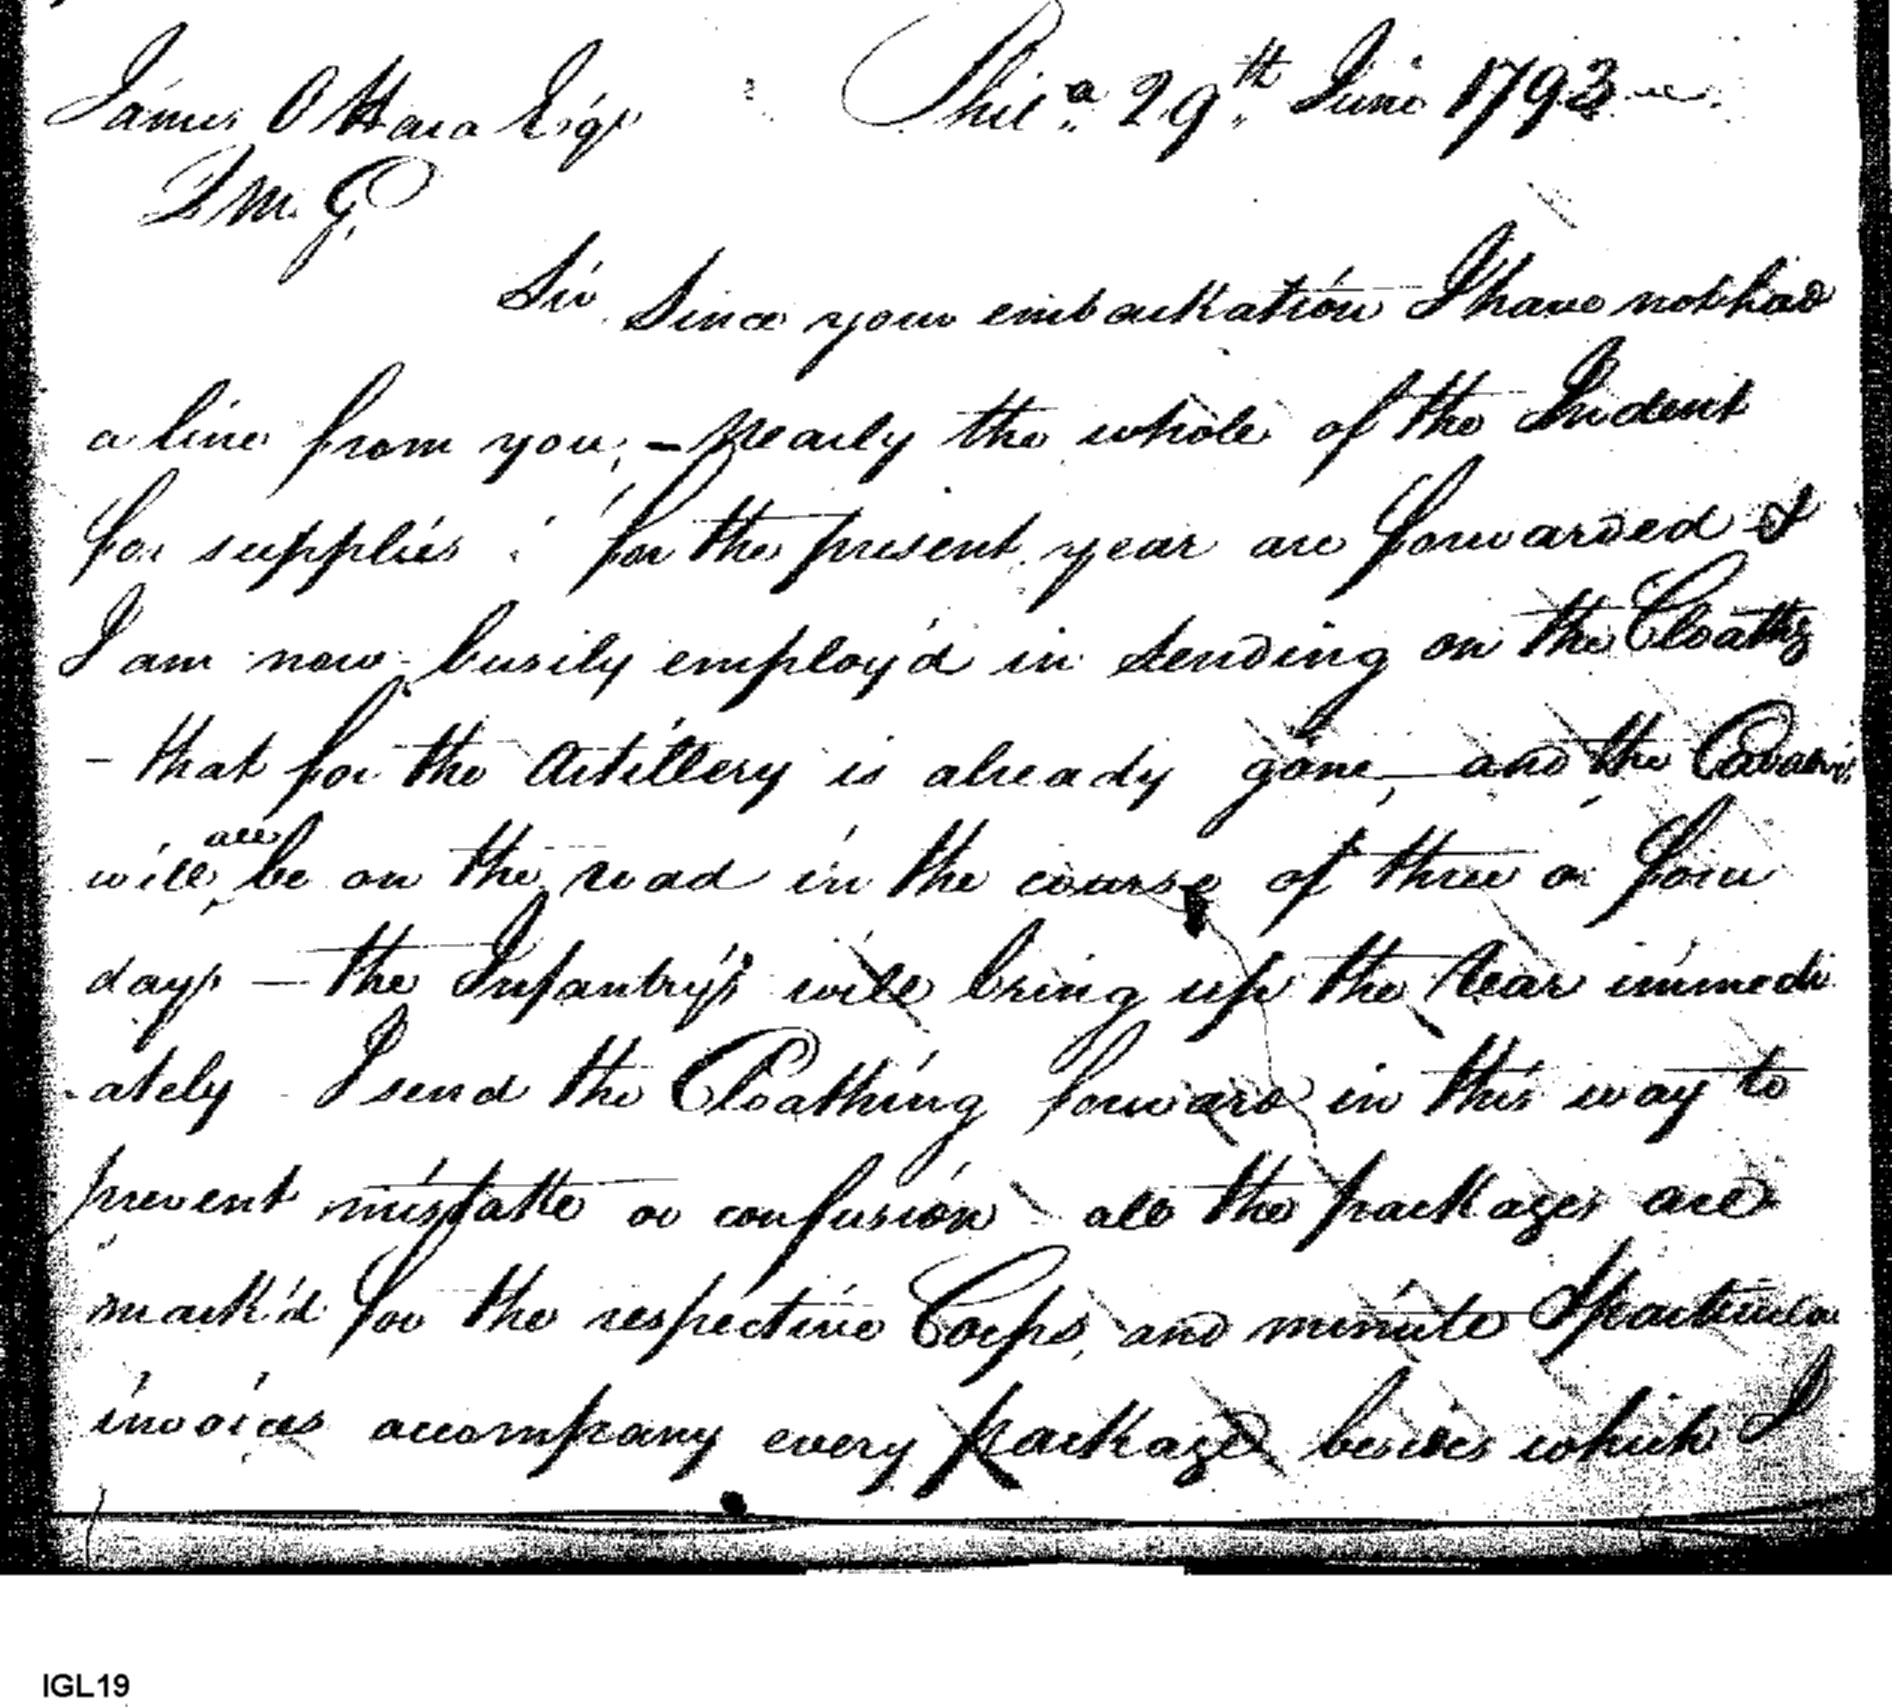 James O Hara Esqr Phila. 29th. June 1793
Q M. G.
Sir Since your embarkation I have not had
a line from you, - Nearly the whole of the Indent
for supplies for the present year are forwarded &
I am now busily employ'd in sending on the Cloathg
- that for the Artillery is already gone, and the Cavalry's
will all be on the road in the course of three or four
days — the Infantry's will bring up the rear immedi
-ately I send the Cloathing forward in this way to
prevent mistake or confusion all the packages are
mark'd for the respective Corps, and minute & particular
invoices accompany every package besides which I
IGL19